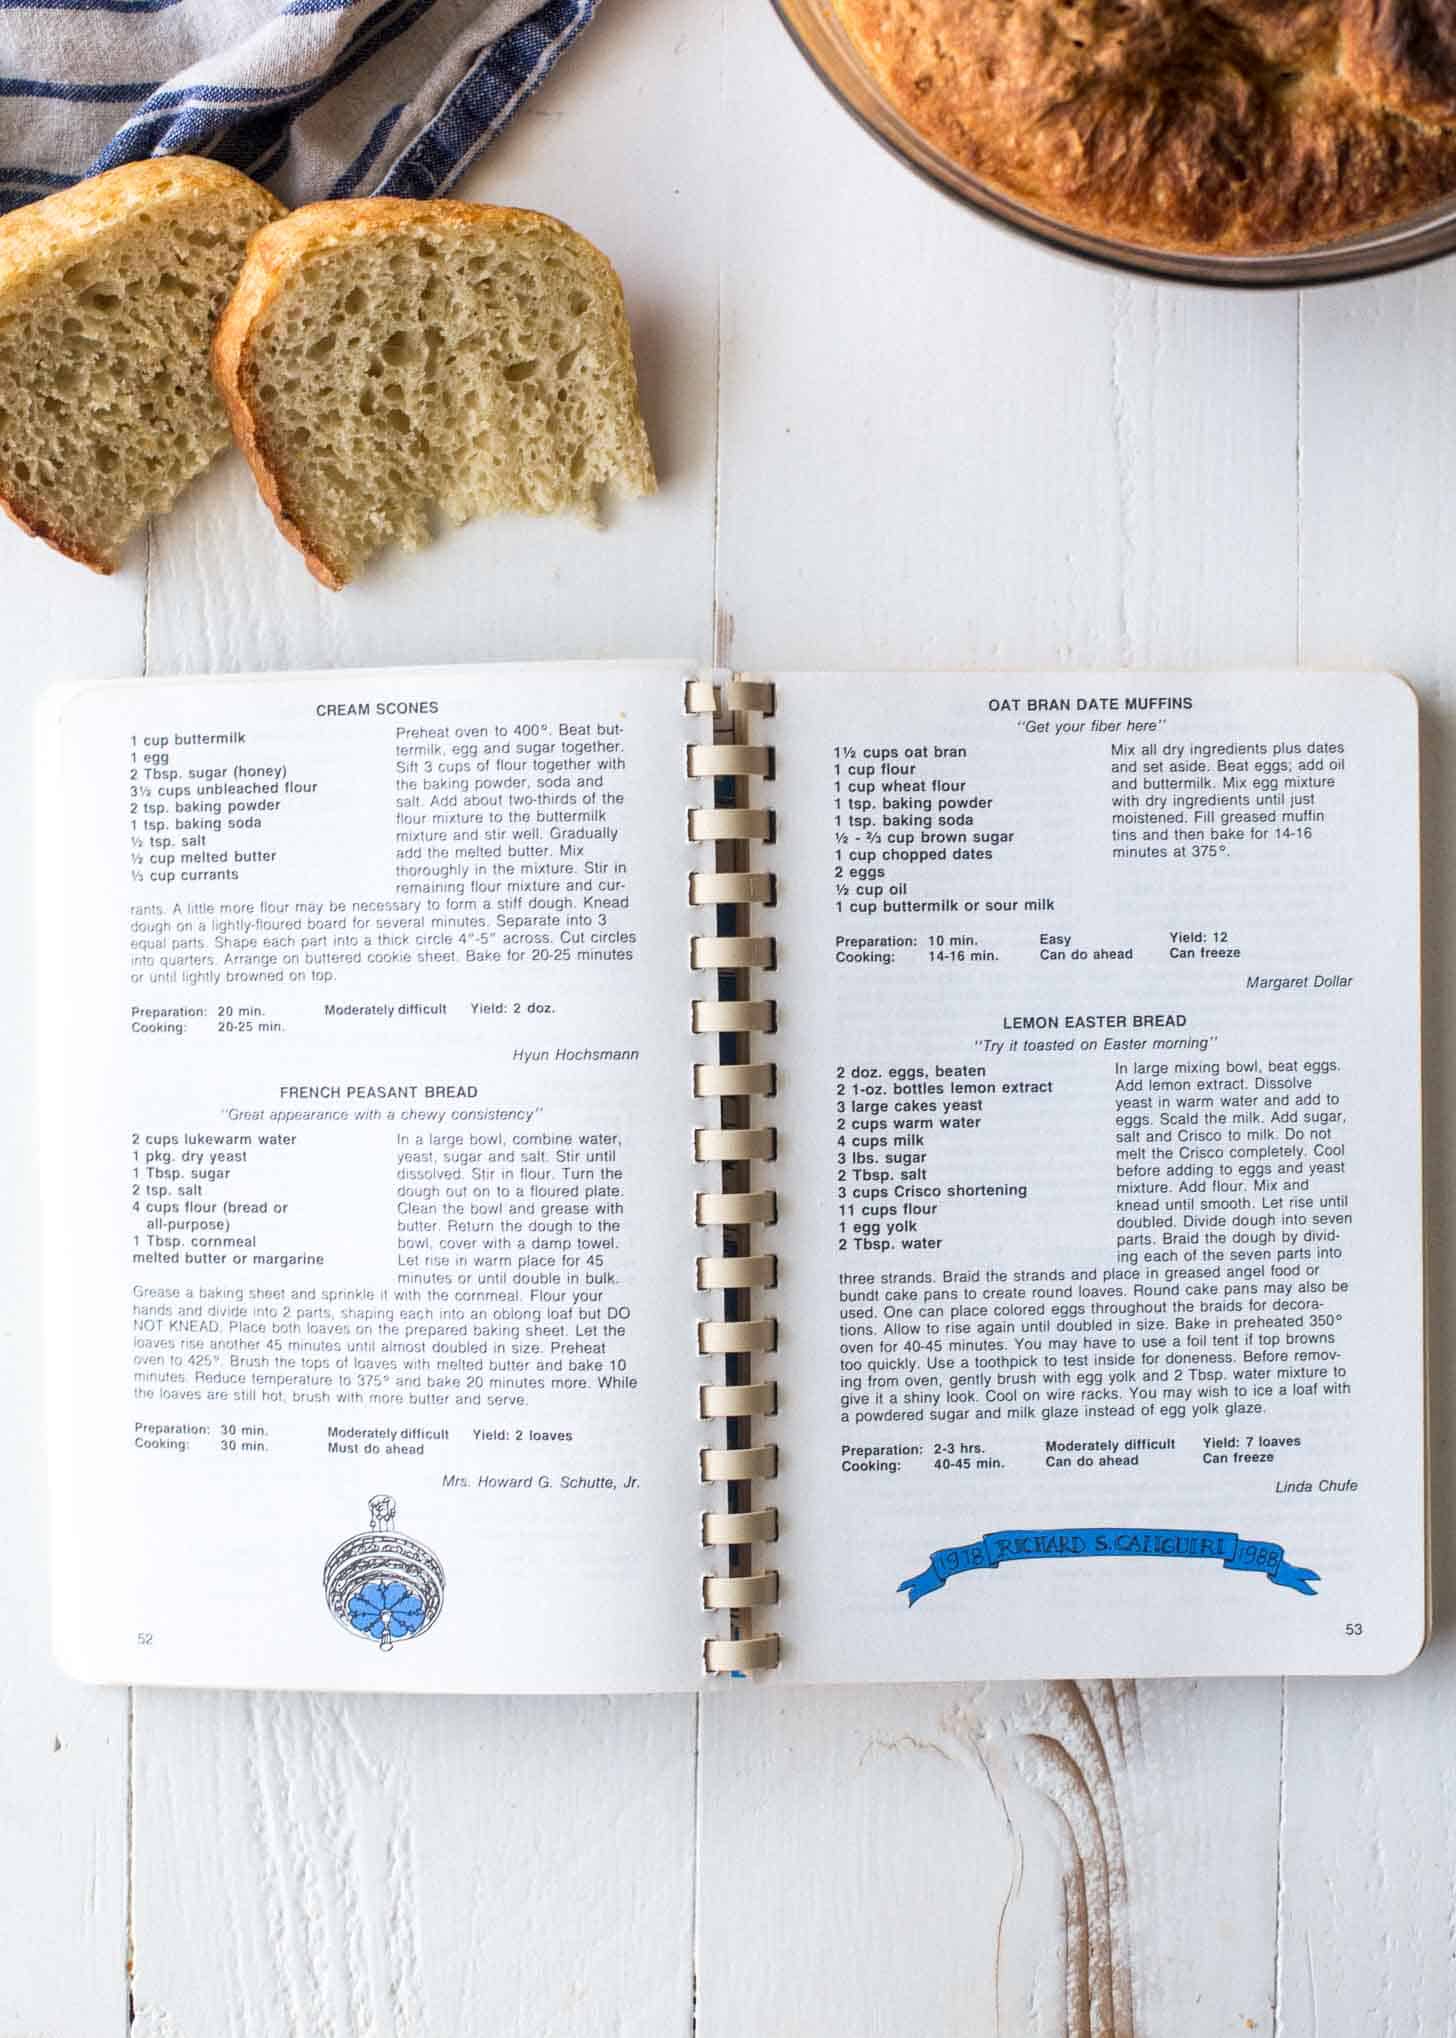 CREAM SCONES
1 cup buttermilk
1 egg
2 Tbsp. sugar (honey)
3½ cups unbleached flour
2 tsp. baking powder
1 tsp. baking soda
½ tsp. salt
½ cup melted butter
⅓ cup currants
Preheat oven to 400°. Beat but-
termilk, egg and sugar together.
Sift 3 cups of flour together with
the baking powder, soda and
salt. Add about two-thirds of the
flour mixture to the buttermilk
mixture and stir well. Gradually
add the melted butter. Mix
thoroughly in the mixture. Stir in
remaining flour mixture and cur-
rants. A little more flour may be necessary to form a stiff dough. Knead
dough on a lightly-floured board for several minutes. Separate into 3
equal parts. Shape each part into a thick circle 4"-5" across. Cut circles
into quarters. Arrange on buttered cookie sheet. Bake for 20-25 minutes
or until lightly browned on top.
Preparation: 20 min. Moderately difficult Yield: 2 doz.
Cooking: 20-25 min.
Hyun Hochsmann
FRENCH PEASANT BREAD
"Great appearance with a chewy consistency"
2 cups lukewarm water
1 pkg. dry yeast
1 Tbsp. sugar
2 tsp. salt
4 cups flour (bread or
all-purpose)
1 Tbsp. cornmeal
melted butter or margarine
In a large bowl, combine water,
yeast, sugar and salt. Stir until
dissolved. Stir in flour. Turn the
dough out on to a floured plate.
Clean the bowl and grease with
butter. Return the dough to the
bowl, cover with a damp towel.
Let rise in warm place for 45
minutes or until double in bulk.
Grease a baking sheet and sprinkle it with the cornmeal. Flour your
hands and divide into 2 parts, shaping each into an oblong loaf but DO
NOT KNEAD. Place both loaves on the prepared baking sheet. Let the
loaves rise another 45 minutes until almost doubled in size. Preheat
oven to 425°. Brush the tops of loaves with melted butter and bake 10
minutes. Reduce temperature to 375° and bake 20 minutes more. While
the loaves are still hot, brush with more butter and serve.
Preparation: 30 min. Moderately difficult Yield: 2 loaves
Cooking: 30 min. Must do ahead
Mrs. Howard G. Schutte, Jr.
52
OAT BRAN DATE MUFFINS
"Get your fiber here"
1½ cups oat bran
1 cup flour
1 cup wheat flour
1 tsp. baking powder
1 tsp. baking soda
½ - ⅔ cup brown sugar
1 cup chopped dates
2 eggs
½ cup oil
1 cup buttermilk or sour milk
Mix all dry ingredients plus dates
and set aside. Beat eggs; add oil
and buttermilk. Mix egg mixture
with dry ingredients until just
moistened. Fill greased muffin
tins and then bake for 14-16
minutes at 375°.
Preparation: 10 min. Easy Yield: 12
Cooking: 14-16 min. Can do ahead Can freeze
Margaret Dollar
LEMON EASTER BREAD
"Try it toasted on Easter morning"
2 doz. eggs, beaten
2 1-oz. bottles lemon extract
3 large cakes yeast
2 cups warm water
4 cups milk
3 lbs. sugar
2 Tbsp. salt
3 cups Crisco shortening
11 cups flour
1 egg yolk
2 Tbsp. water
In large mixing bowl, beat eggs.
Add lemon extract. Dissolve
yeast in warm water and add to
eggs. Scald the milk. Add sugar,
salt and Crisco to milk. Do not
melt the Crisco completely. Cool
before adding to eggs and yeast
mixture. Add flour. Mix and
knead until smooth. Let rise until
doubled. Divide dough into seven
parts. Braid the dough by divid-
ing each of the seven parts into
three strands. Braid the strands and place in greased angel food or
bundt cake pans to create round loaves. Round cake pans may also be
used. One can place colored eggs throughout the braids for decora-
tions. Allow to rise again until doubled in size. Bake in preheated 350°
oven for 40-45 minutes. You may have to use a foil tent if top browns
too quickly. Use a toothpick to test inside for doneness. Before remov-
ing from oven, gently brush with egg yolk and 2 Tbsp. water mixture to
give it a shiny look. Cool on wire racks. You may wish to ice a loaf with
a powdered sugar and milk glaze instead of egg yolk glaze.
Preparation: 2-3 hrs. Moderately difficult Yield: 7 loaves
Cooking: 40-45 min. Can do ahead Can freeze
Linda Chufe
1978 RICHARD S. CALIGUIRI 1988
53